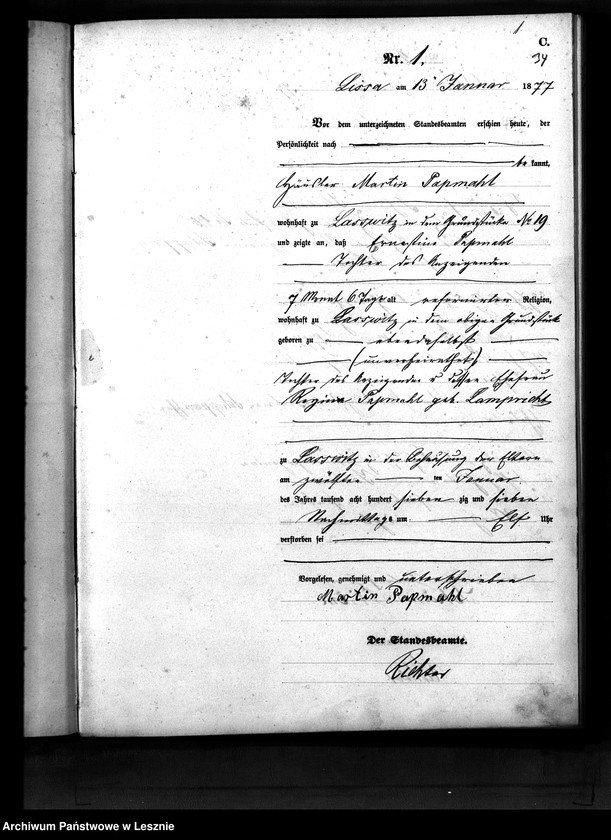 1
C.
34
Nr. 1.
Lissa am 13 Januar 1877
Vor dem unterzeichneten Standesbeamten erschien heute, der
Persönlichkeit nach
be kannt,
Häusler Martin Papmahl
wohnhaft zu Lasswitz in dem Grundstücke No 19
und zeigte an, daß Ernestine Papmahl
Tochter des Anzeigenden
7 Monat 6 Tage alt reformirter Religion,
wohnhaft zu Lasswitz in dem obigen Grundstück
geboren zu ebendaselbst
(unverheirathet)
Tochter des Anzeigenden u dessen Ehefrau
Regina Papmahl geb. Lampricht
zu Lasswitz in der Behausung der Eltern
am zwölften ten Januar
des Jahres tausend acht hundert sieben zig und sieben
Nachmittags um Elf Uhr
verstorben sei
Vorgelesen, genehmigt und unterschrieben
Martin Papmahl
Der Standesbeamte.
Richter
Archiwum Państwowe w Lesznie